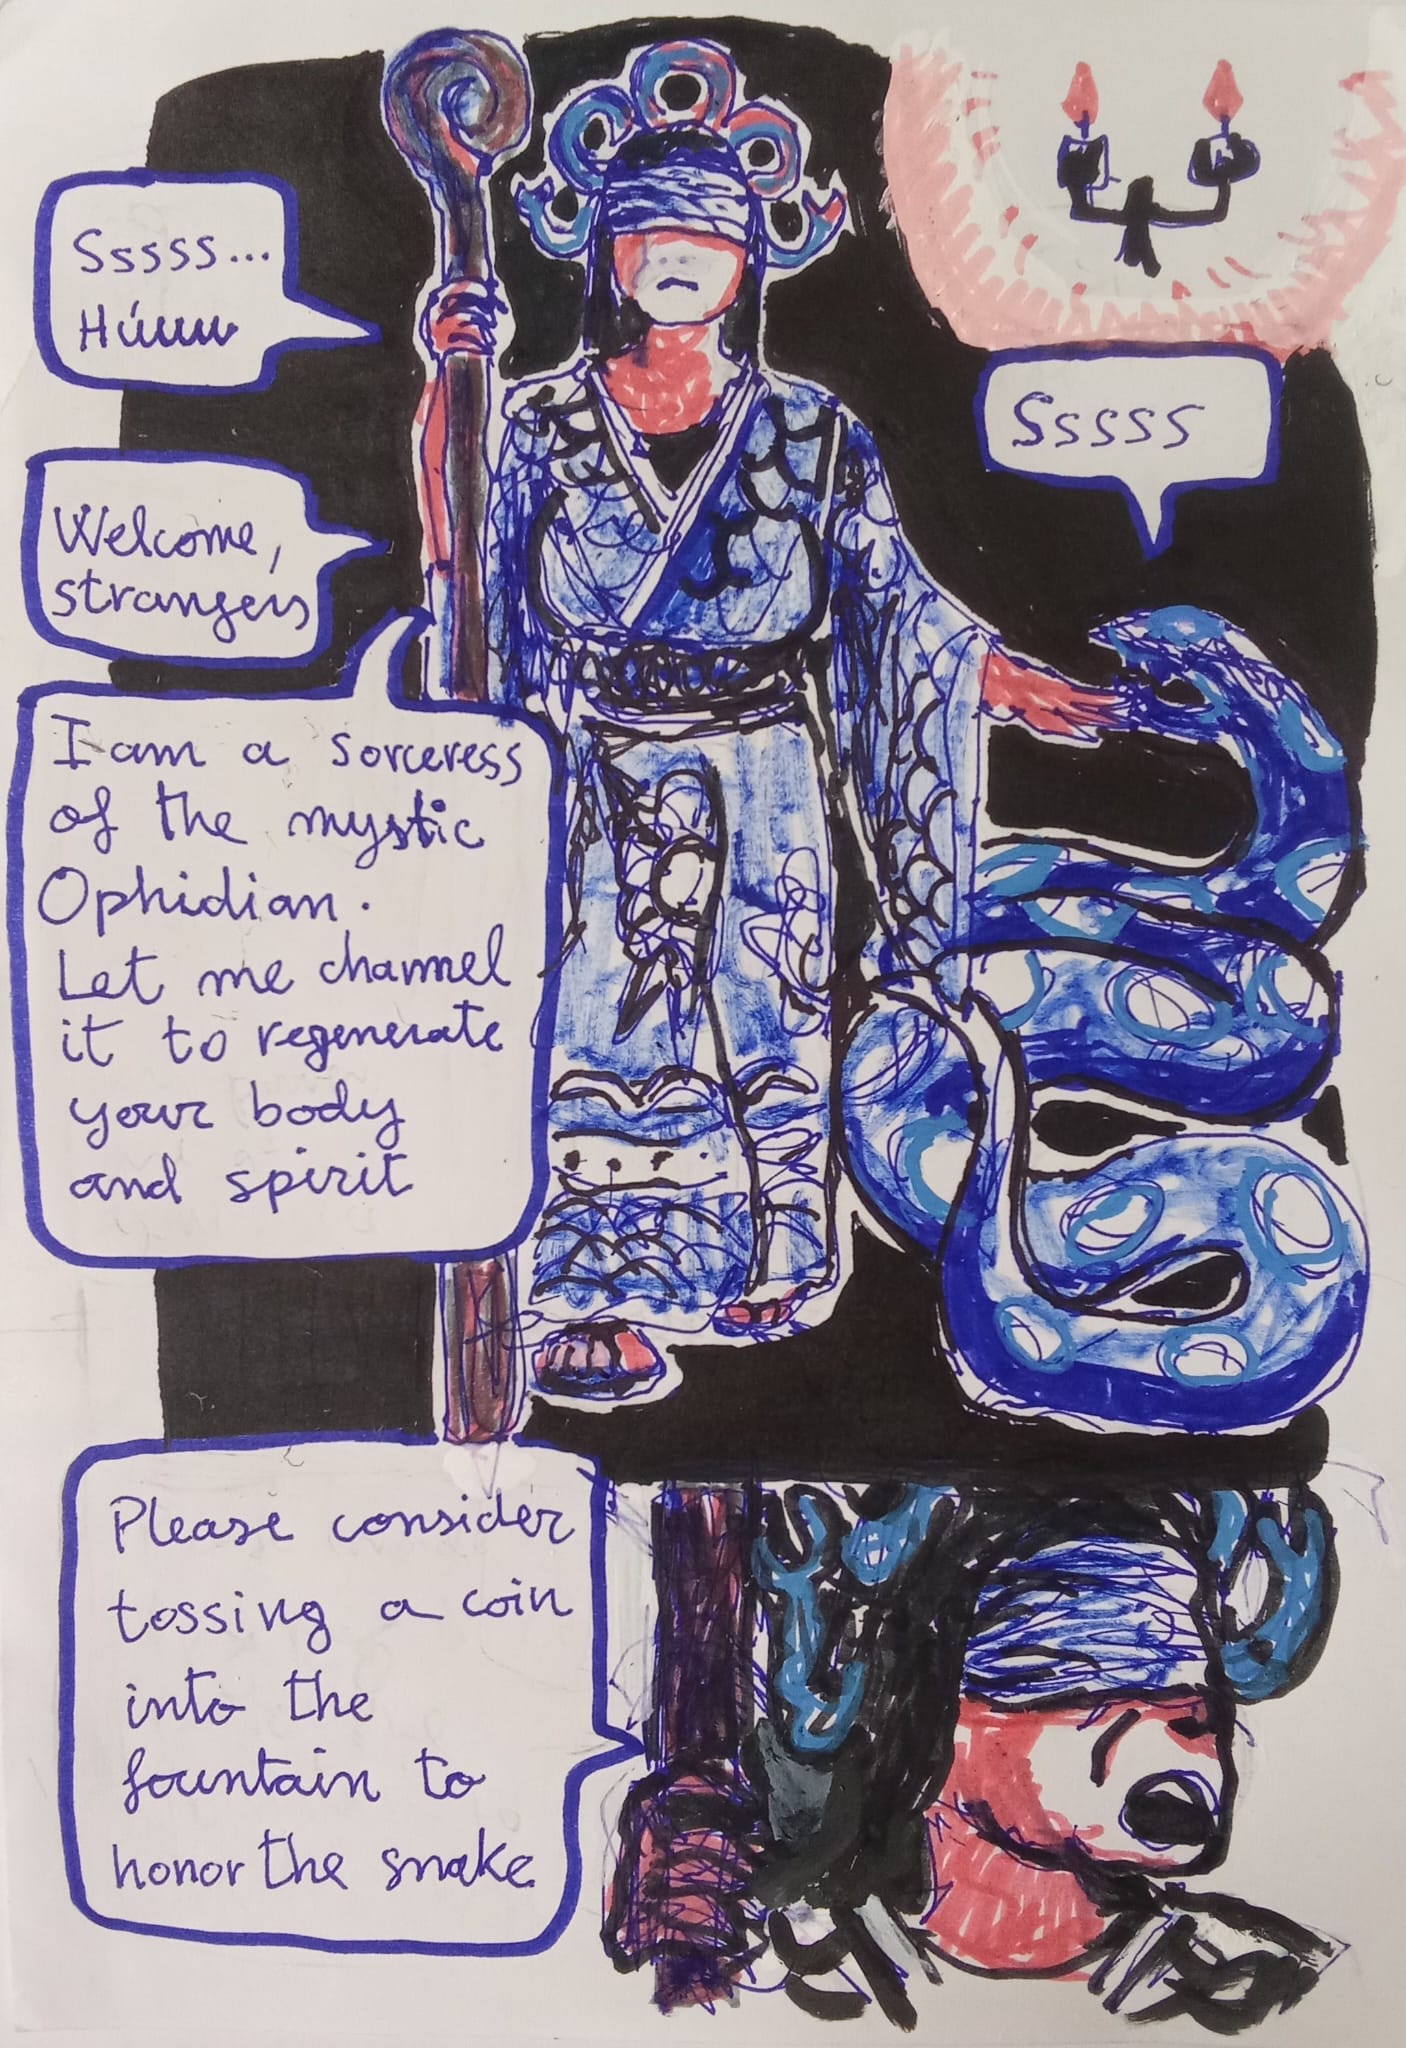 Sssss...
Húuuu
Sssss
Welcome,
strangers
I am a sorceress
of the mystic
Ophidian.
Let me channel
it to regenerate
your body
and spirit
Please consider
tossing a coin
into the
fountain to
honor the snake